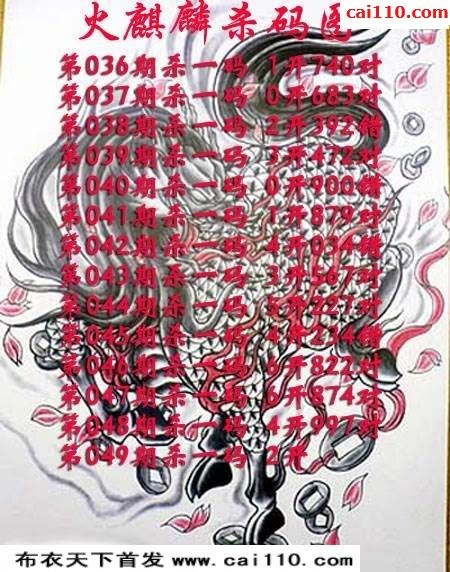 cai110.com
火麒麟杀码图
第036期杀一码 1开740对
第037期杀一码 0开683对
第038期杀一码 2开392错
第039期杀一码 3开472对
第040期杀一码 0开900错
第041期杀一码 1开879对
第042期杀一码 4开034错
第043期杀一码 3开567对
第044期杀一码 5开227对
第045期杀一码 4开234错
第046期杀一码 6开822对
第047期杀一码 6开874对
第048期杀一码 4开997对
第049期杀一码 2开
布衣天下首发 www.cai110.com